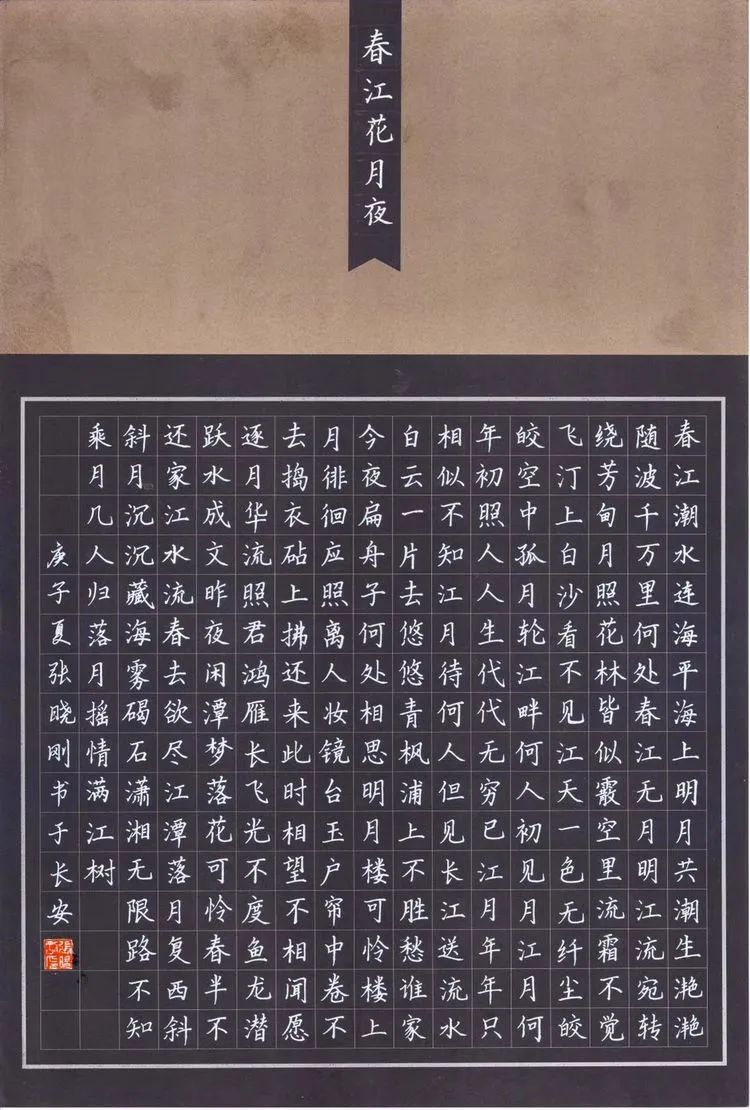 春江花月夜
春江潮水连海平海上明月共潮生滟滟
随波千万里何处春江无月明江流宛转
绕芳甸月照花林皆似霰空里流霜不觉
飞汀上白沙看不见江天一色无纤尘皎
皎空中孤月轮江畔何人初见月江月何
年初照人人生代代无穷已江月年年只
相似不知江月待何人但见长江送流水
白云一片去悠悠青枫浦上不胜愁谁家
今夜扁舟子何处相思明月楼可怜楼上
月徘徊应照离人妆镜台玉户帘中卷不
去捣衣砧上拂还来此时相望不相闻愿
逐月华流照君鸿雁长飞光不度鱼龙潜
跃水成文昨夜闲潭梦落花可怜春半不
还家江水流春去欲尽江潭落月复西斜
斜月沉沉藏海雾碣石潇湘无限路不知
乘月几人归落月摇情满江树
庚子夏张晓刚书于长安